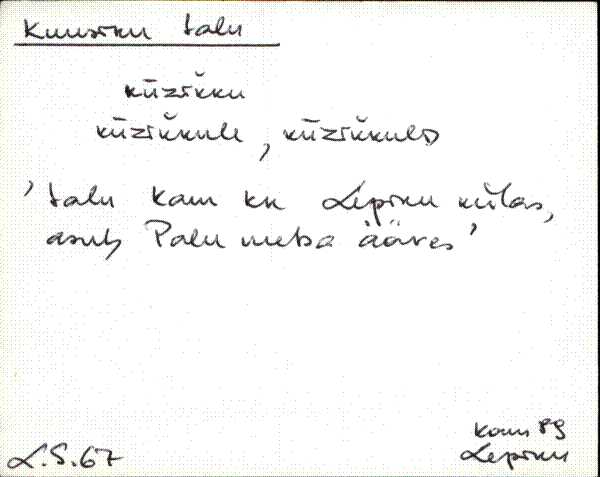 Kuusiku talu
kūzik̆ku
kūzik̆kule, kūzik̆kulᴅ
'talu Kam kn Lepiku külas,
asub Palu metsa ääres'
L.S.67
Kam
Lepiku